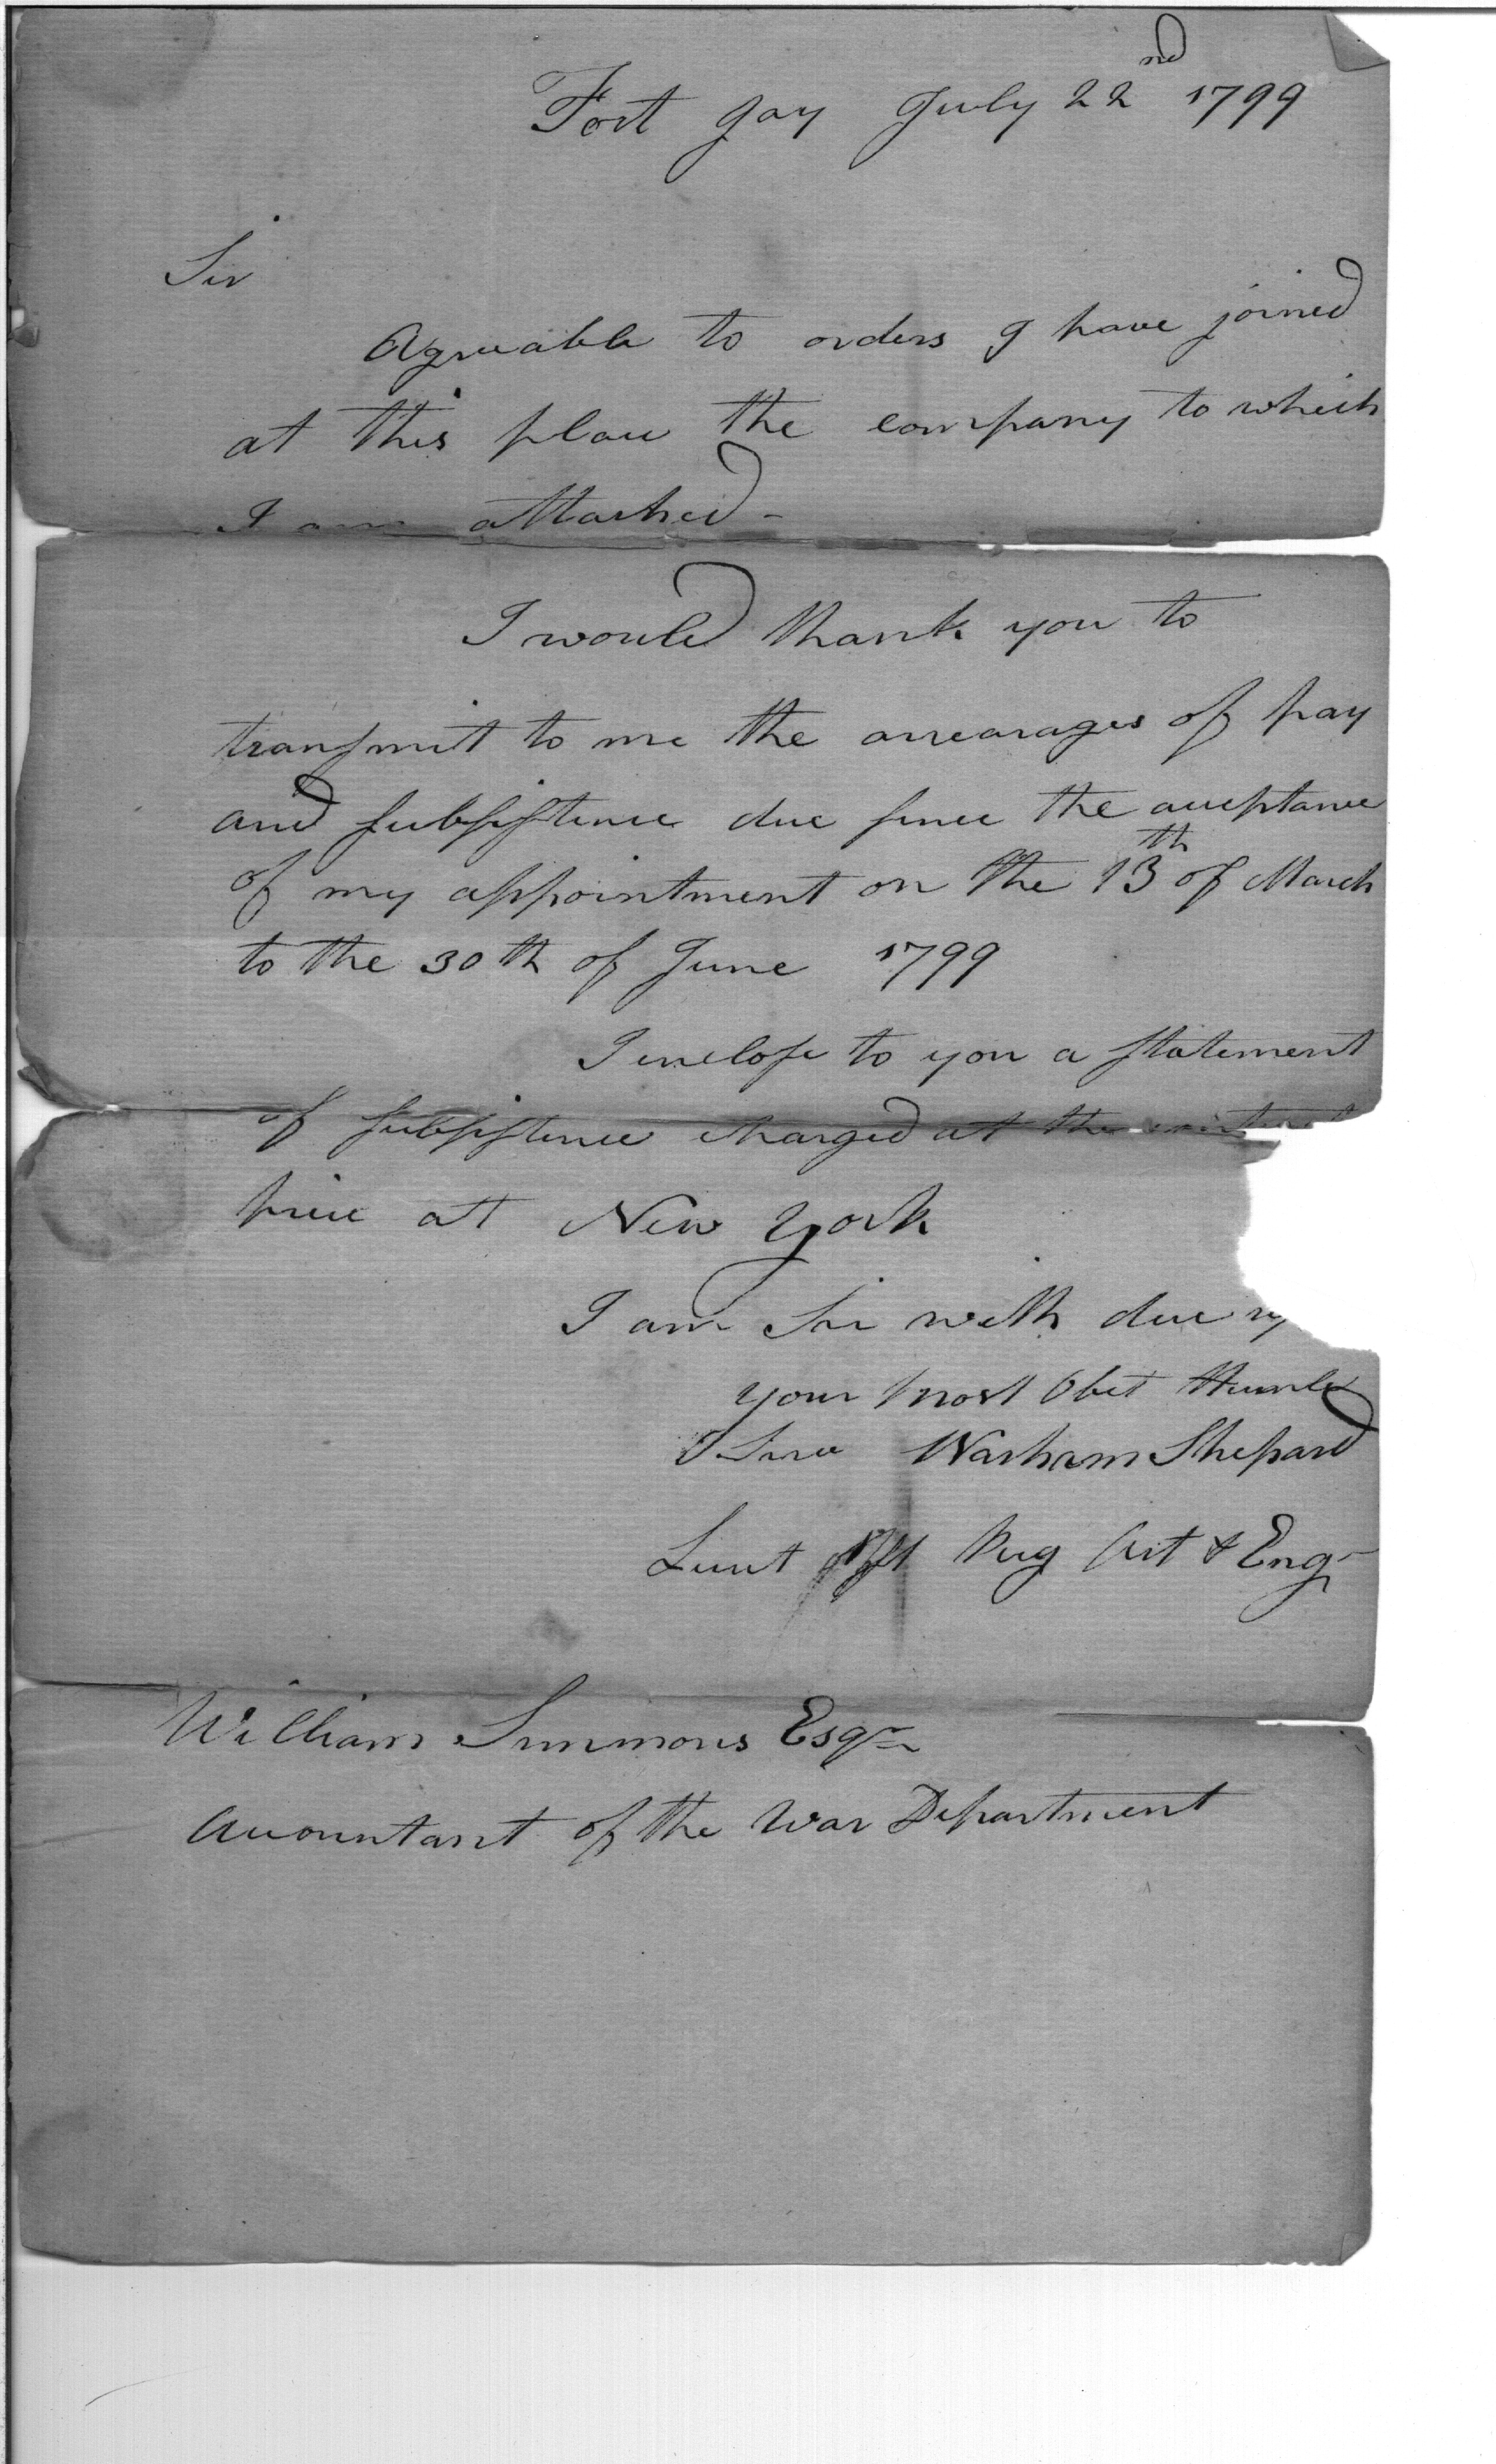 Fort Jay July 22nd 1799
Sir
Agreeable to orders I have joined
at this place the company to which
I am attached -
I would thank you to
transmit to me the arrearages of pay
and subsistence due since the acceptance
of my appointment on the 13th of March
to the 30th of June 1799
I enclose to you a statement
of subsistence charged at the
price at New York
I am Sir with due
your most Obet Humle
Serv Warham Shepard
Lieut Reg Art & Engr
William Simmons Esqr
Accountant of the War Department